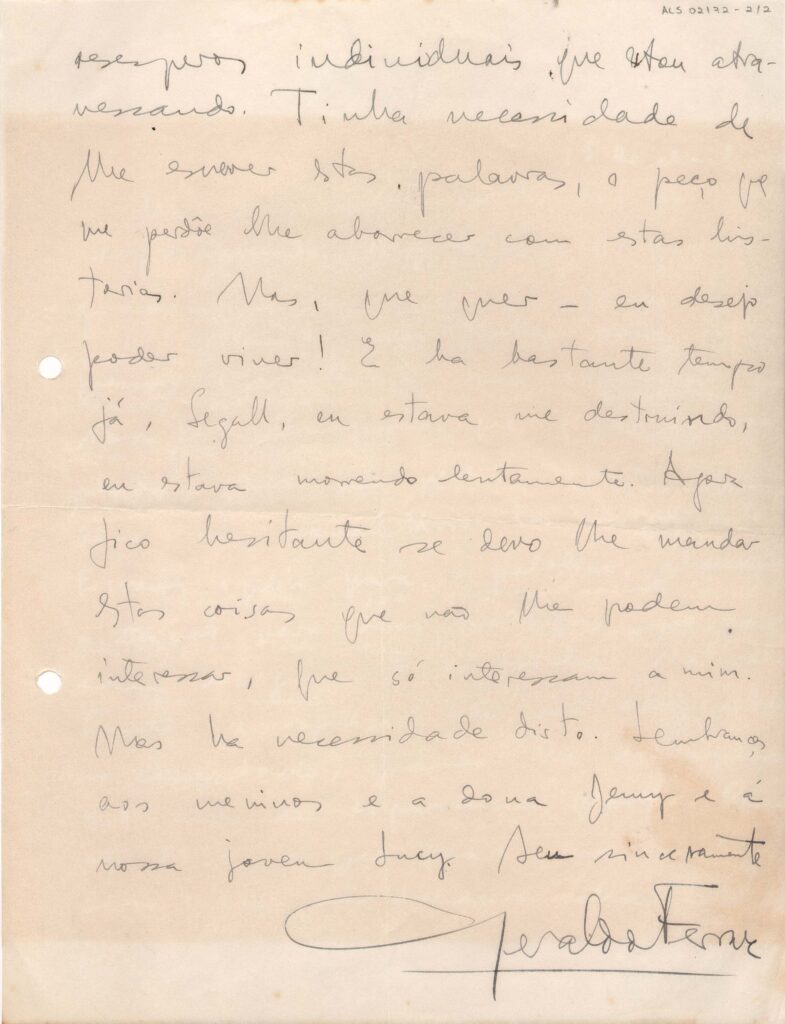 ALS 02172 - 2/2
desesperos individuais que estou atra-
vessando. Tinha necessidade de
lhe escrever estas palavras, e peço q̃
me perdôe lhe aborrecer com estas his-
torias. Mas, que quer – eu desejo
poder viver! E ha bastante tempo
já, Segall, eu estava me destruindo,
eu estava morrendo lentamente. Agora
fico hesitante se devo lhe mandar
estas coisas que não lhe podem
interessar, que só interessam a mim.
Mas ha necessidade disto. Lembranças
aos meninos e a dona Jenny e á
nossa jovem Lucy. Seu sinceramente
Geraldo Ferraz